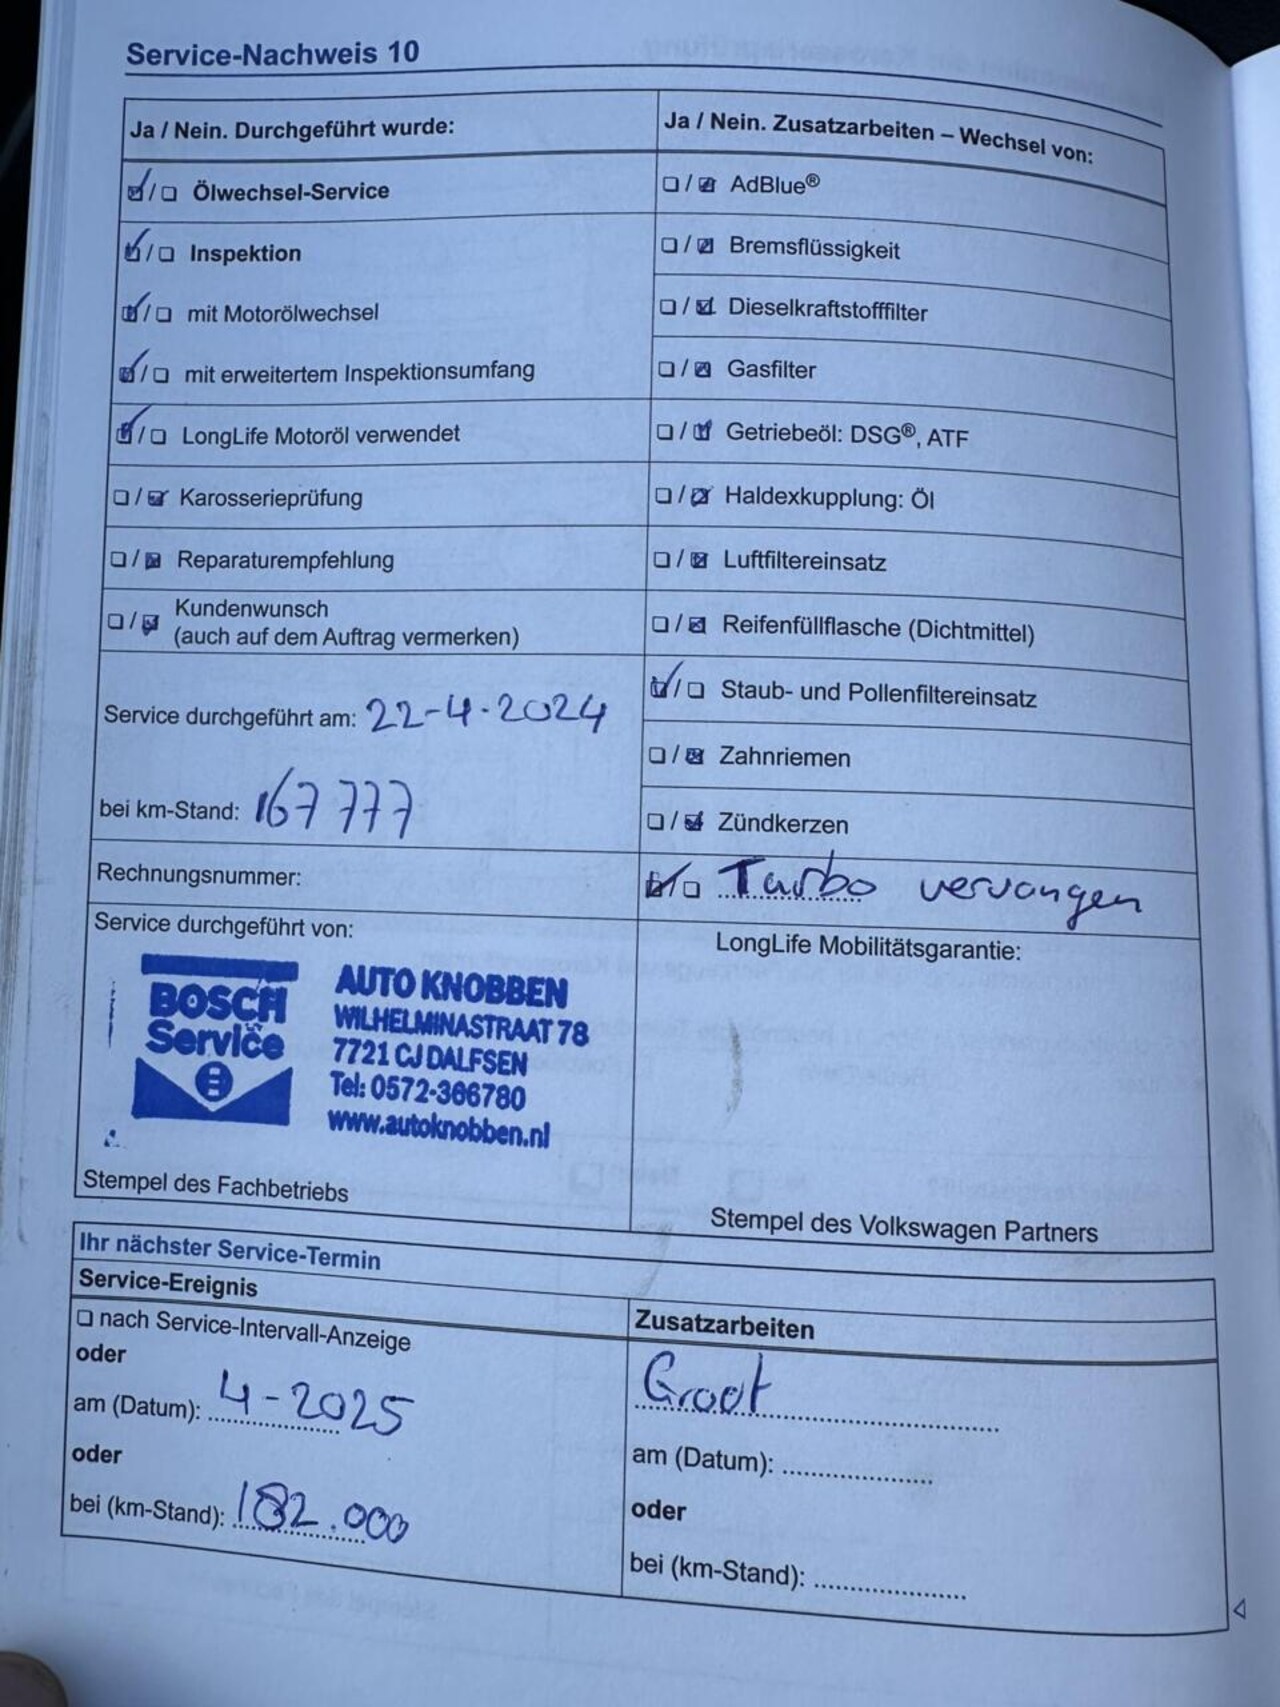 Service-Nachweis 10
Ja / Nein. Durchgeführt wurde:
Ölwechsel-Service
Inspektion
mit Motorölwechsel
mit erweitertem Inspektionsumfang
LongLife Motoröl verwendet
Karosserieprüfung
Reparaturempfehlung
Kundenwunsch
(auch auf dem Auftrag vermerken)
Service durchgeführt am: 22-4-2024
bei km-Stand: 167 777
Rechnungsnummer:
Service durchgeführt von:
BOSCH
Service
AUTO KNOBBEN
WILHELMINASTRAAT 78
7721 CJ DALFSEN
Tel: 0572-366780
www.autoknobben.nl
Stempel des Fachbetriebs
Ja / Nein. Zusatzarbeiten – Wechsel von:
AdBlue®
Bremsflüssigkeit
Dieselkraftstofffilter
Gasfilter
Getriebeöl: DSG®, ATF
Haldexkupplung: Öl
Luftfiltereinsatz
Reifenfüllflasche (Dichtmittel)
Staub- und Pollenfiltereinsatz
Zahnriemen
Zündkerzen
Turbo vervangen
LongLife Mobilitätsgarantie:
Stempel des Volkswagen Partners
Ihr nächster Service-Termin
Service-Ereignis
nach Service-Intervall-Anzeige
oder
am (Datum): 4-2025
oder
bei (km-Stand): 182.000
Zusatzarbeiten
Groot
am (Datum):
oder
bei (km-Stand):